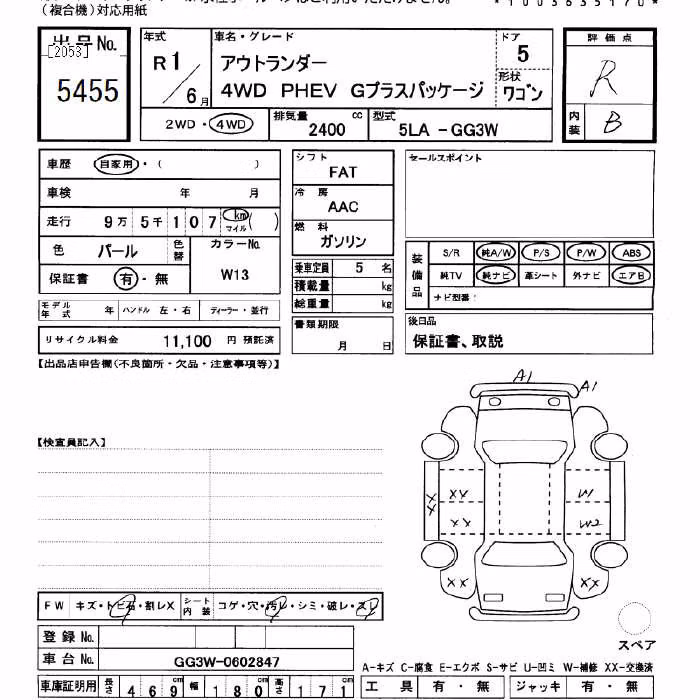 (複合機)対応用紙
*1003635170*
出品No.
[2053]
5455
年式
R1/6月
車名・グレード
アウトランダー
4WD PHEV Gプラスパッケージ
ドア
5
形状
ワゴン
評価点
R
内装
B
2WD・4WD
排気量
2400 cc
型式
5LA -GG3W
車歴 自家用・( )
車検 年 月
走行 9万 5千 107 km マイル ( )
色 パール 色替
カラーNo.
W13
保証書 有 - 無
モデル年式 年 ハンドル 左・右 ディーラー・並行
リサイクル料金 11,100 円 預託済
シフト
FAT
冷房
AAC
燃料
ガソリン
乗車定員 5 名
積載量 kg
総重量 kg
書類期限
月 日
セールスポイント
装備品
S/R 純A/W P/S P/W ABS
純TV 純ナビ 革シート 外ナビ エアB
ナビ型番:
後日品
保証書、取説
【出品店申告欄(不良箇所・欠品・注意事項等)】
【検査員記入】
A1
A1
XX
XX
XX
XX
W1
W2
XX
XX
スペア
FW キズ・トビ石・割レX
シート内装 コゲ・穴・汚レ・シミ・破レ・スレ
登録No.
車台No. GG3W-0602847
車庫証明用 長さ 469cm 幅 180cm 高さ 171cm
A-キズ C-腐食 E-エクボ S-サビ U-凹ミ W-補修 XX-交換済
工具 有・無 ジャッキ 有・無